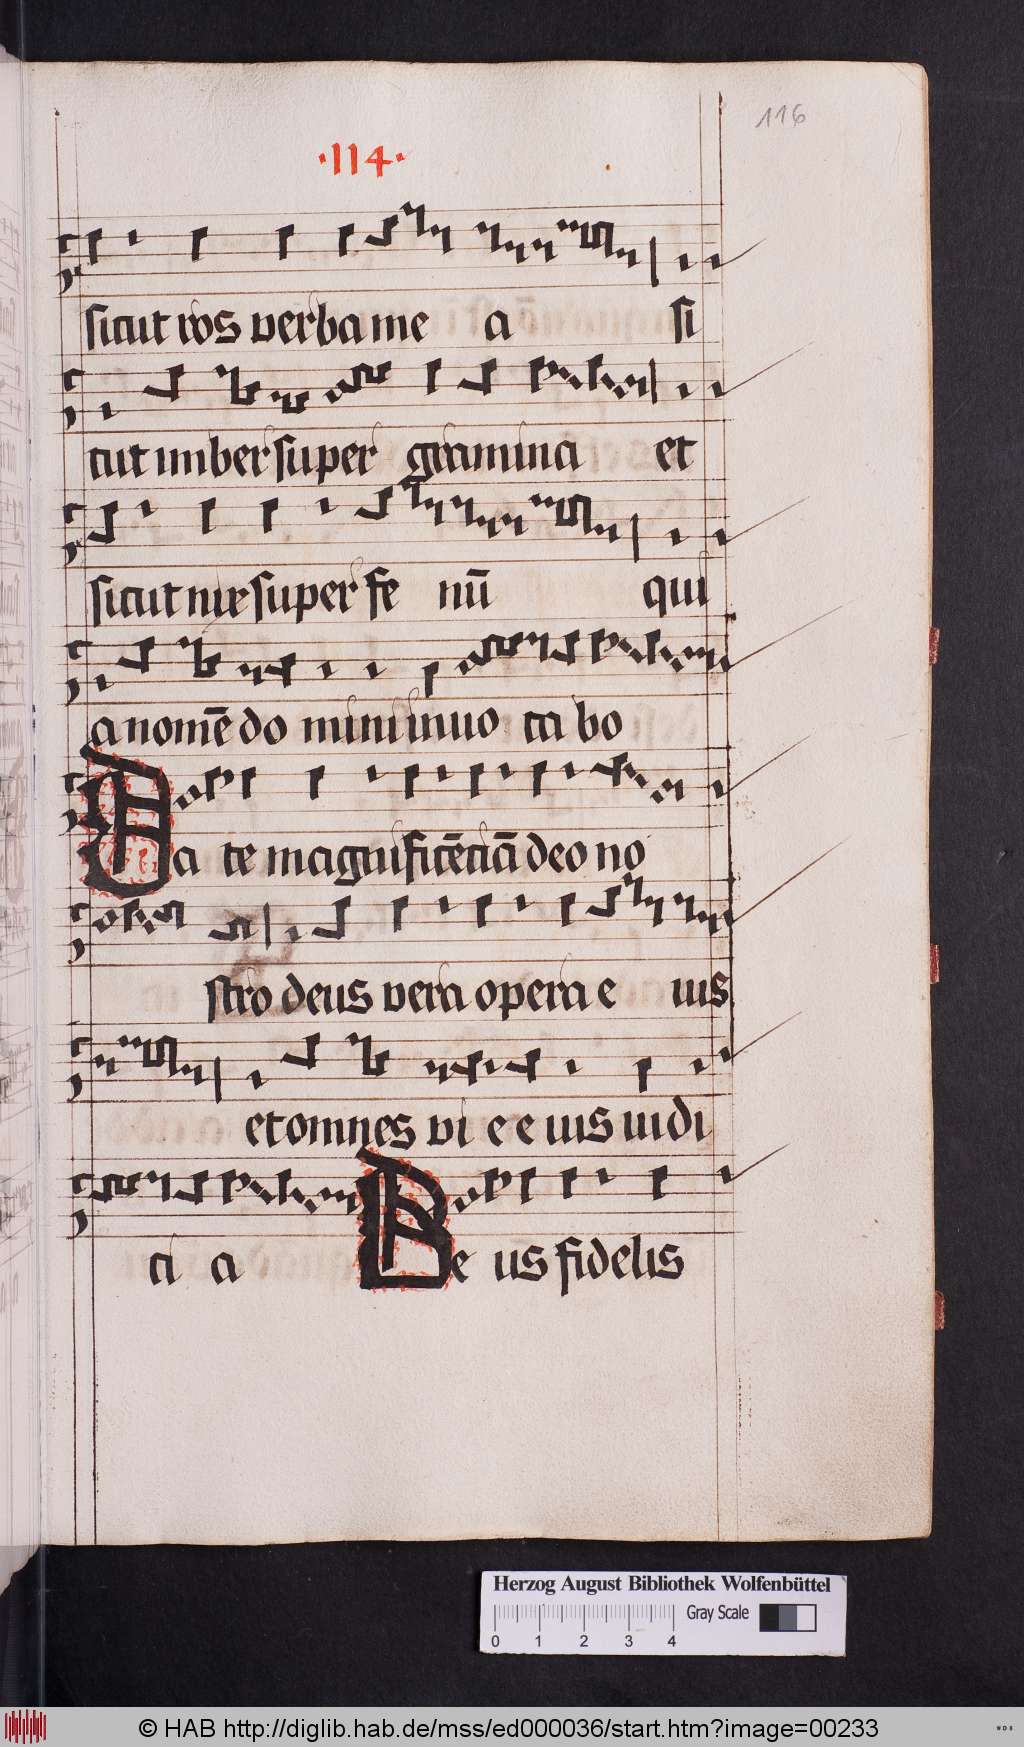 116
·114·
sicut ros verba me a si
cut imber super gramina et
sicut nix super fe nū qui
a nomē do mini inuo ca bo
Da te magnificēciā deo no
stro deus vera opera e ius
et omnes vi e e ius iudi
ci a De us fidelis
Herzog August Bibliothek Wolfenbüttel
Gray Scale
0 1 2 3 4
© HAB http://diglib.hab.de/mss/ed000036/start.htm?image=00233